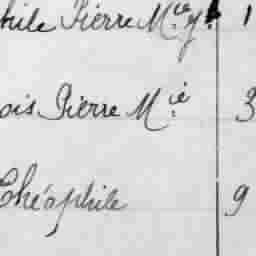 hile Pierre M.ie J. 1
ois Pierre M.ie 3
Théophile 9